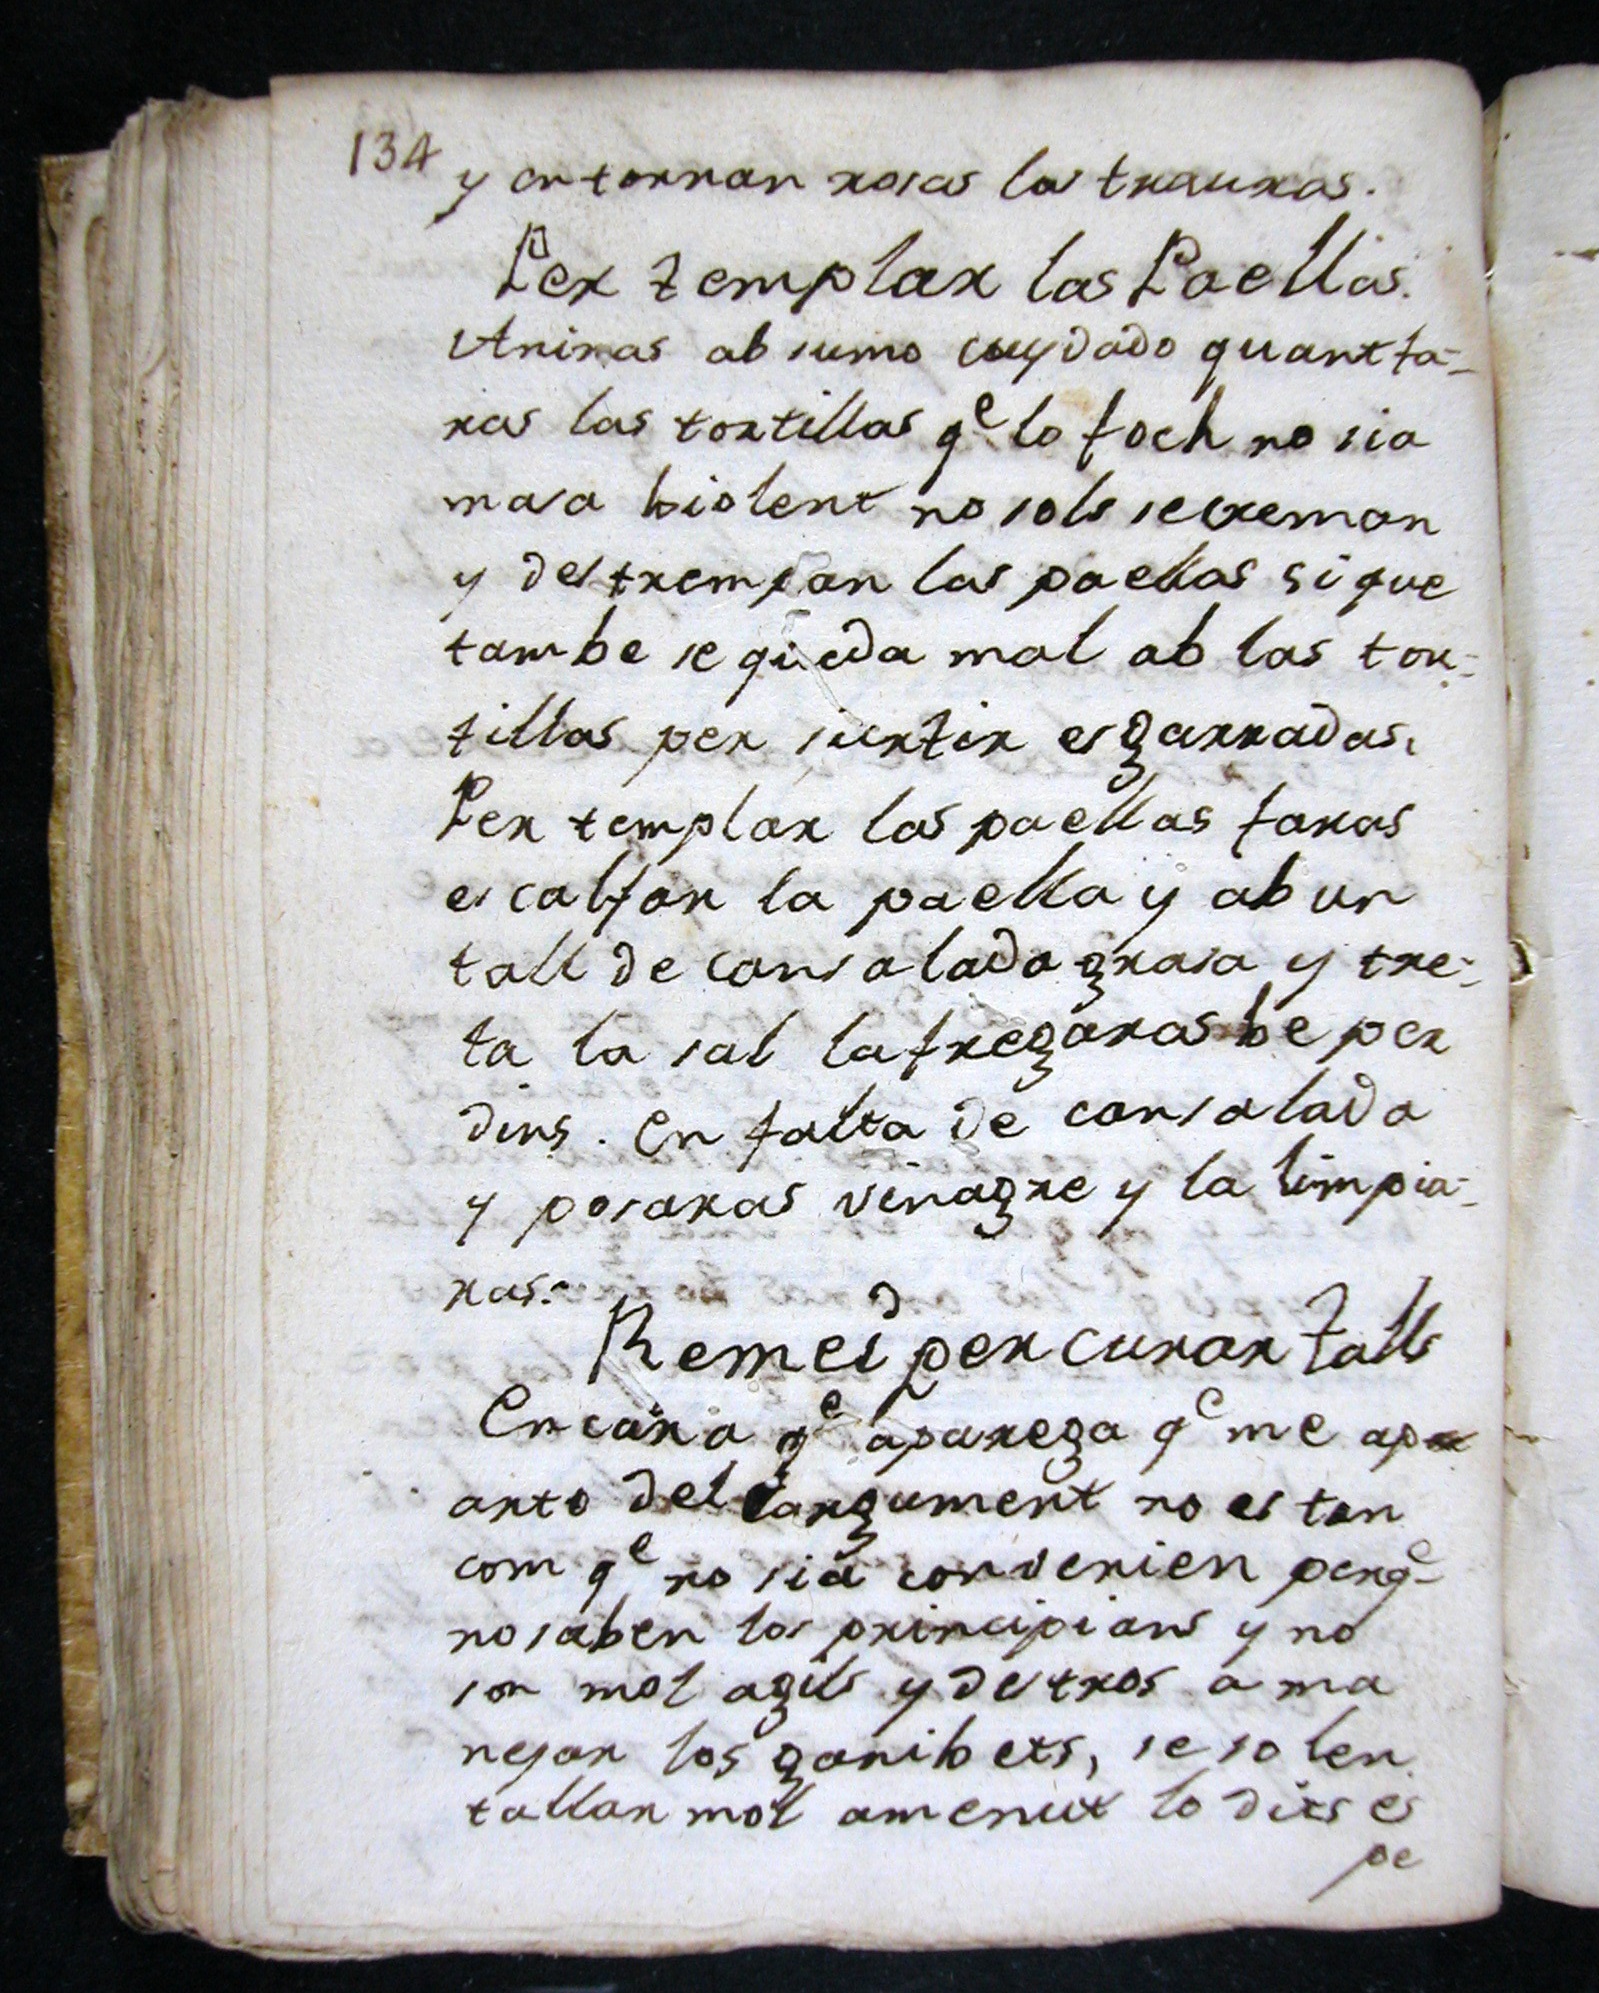 134
y en tornan rosas las trauras.
Per templar las Paellas.
Aniras ab sumo cuydado quant fa-
ras las tortillas qe lo foch no sia
masa biolent no sols se creman
y destrempan las paellas si que
tambe se queda mal ab las tor-
tillas per surtir esgarradas.
Per templar las paellas faras
escalfar la paella y ab un
tall de consalada grasa y tre-
ta la sal la fregaras be per
dins. En falta de consalada
y posaras vinagre y la limpia-
ras.
Remei per curar talls
Encara qe aparega qe me ap
arto del argument no es tan
com qe no sia convenien perqe
no saben los principians y no
son mol agils y destros a ma
nejar los ganibets, se solen
tallar mol amenut lo dits es
pe